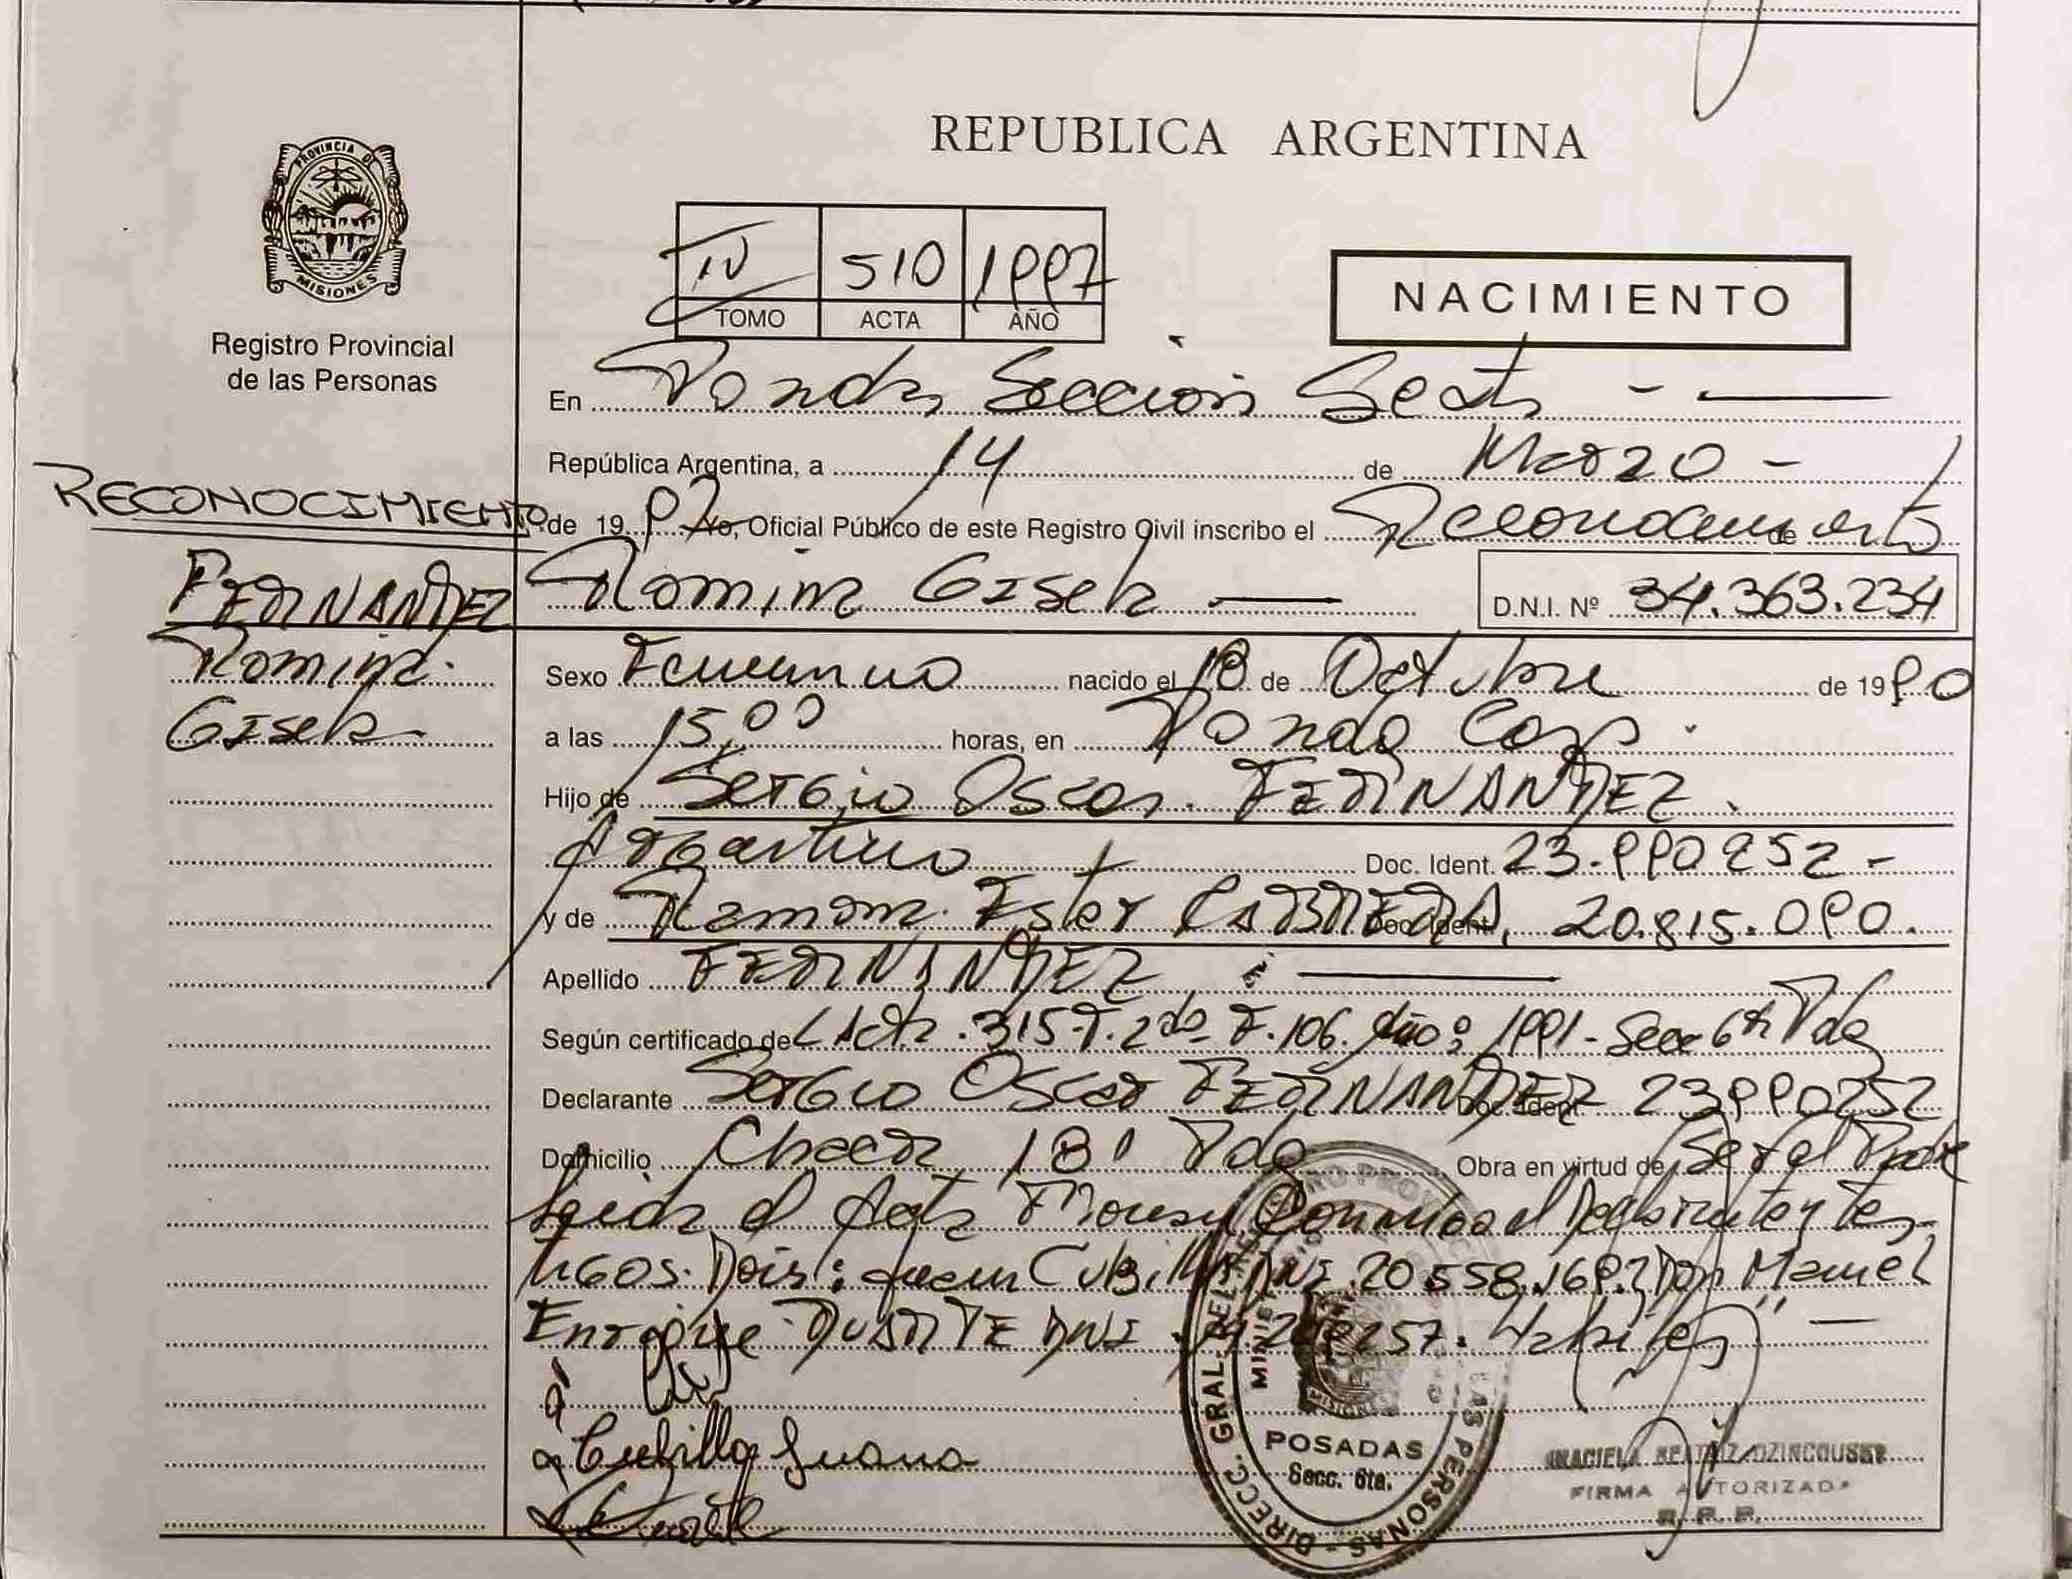 REPUBLICA ARGENTINA
PROVINCIA DE
MISIONES
Registro Provincial
de las Personas
IV 510 1997
TOMO ACTA AÑO
NACIMIENTO
En Posadas Sección Sexta
República Argentina, a 14 de Marzo
RECONOCIMIENTO
de 1997 Yo, Oficial Público de este Registro Civil inscribo el Reconocimiento de
FERNANDEZ
Romina
Gisela
Romina Gisela D.N.I. Nº 34.363.234
Sexo Femenino nacido el 18 de Octubre de 1990
a las 15,00 horas, en Posadas
Hijo de Sergio Oscar FERNANDEZ
Argentino Doc. Ident. 23.990252
y de Ramona Ester CABRERA Doc. Ident. 20.815.090.
Apellido FERNANDEZ
Según certificado de Acta 315 T. 2do F. 106 Año: 1991 - Secc 6ta Pdas
Declarante Sergio Oscar FERNANDEZ Doc. Ident 23990252
Domicilio Chacra 181 Pdas Obra en virtud de Ser el Padre
Leida el Acta Firman Conmigo el Declarante y tes
tigos. Dois: Juana Cubilla DNI 20.558.169 Don Manuel
Enrique DUARTE DNI Habiles
Cubilla Juana
DIRECC. GRAL. DEL REGISTRO PROVINCIAL DE LAS PERSONAS
POSADAS
Secc. 6ta.
GRACIELA BEATRIZ
FIRMA AUTORIZADA
R. P. P.